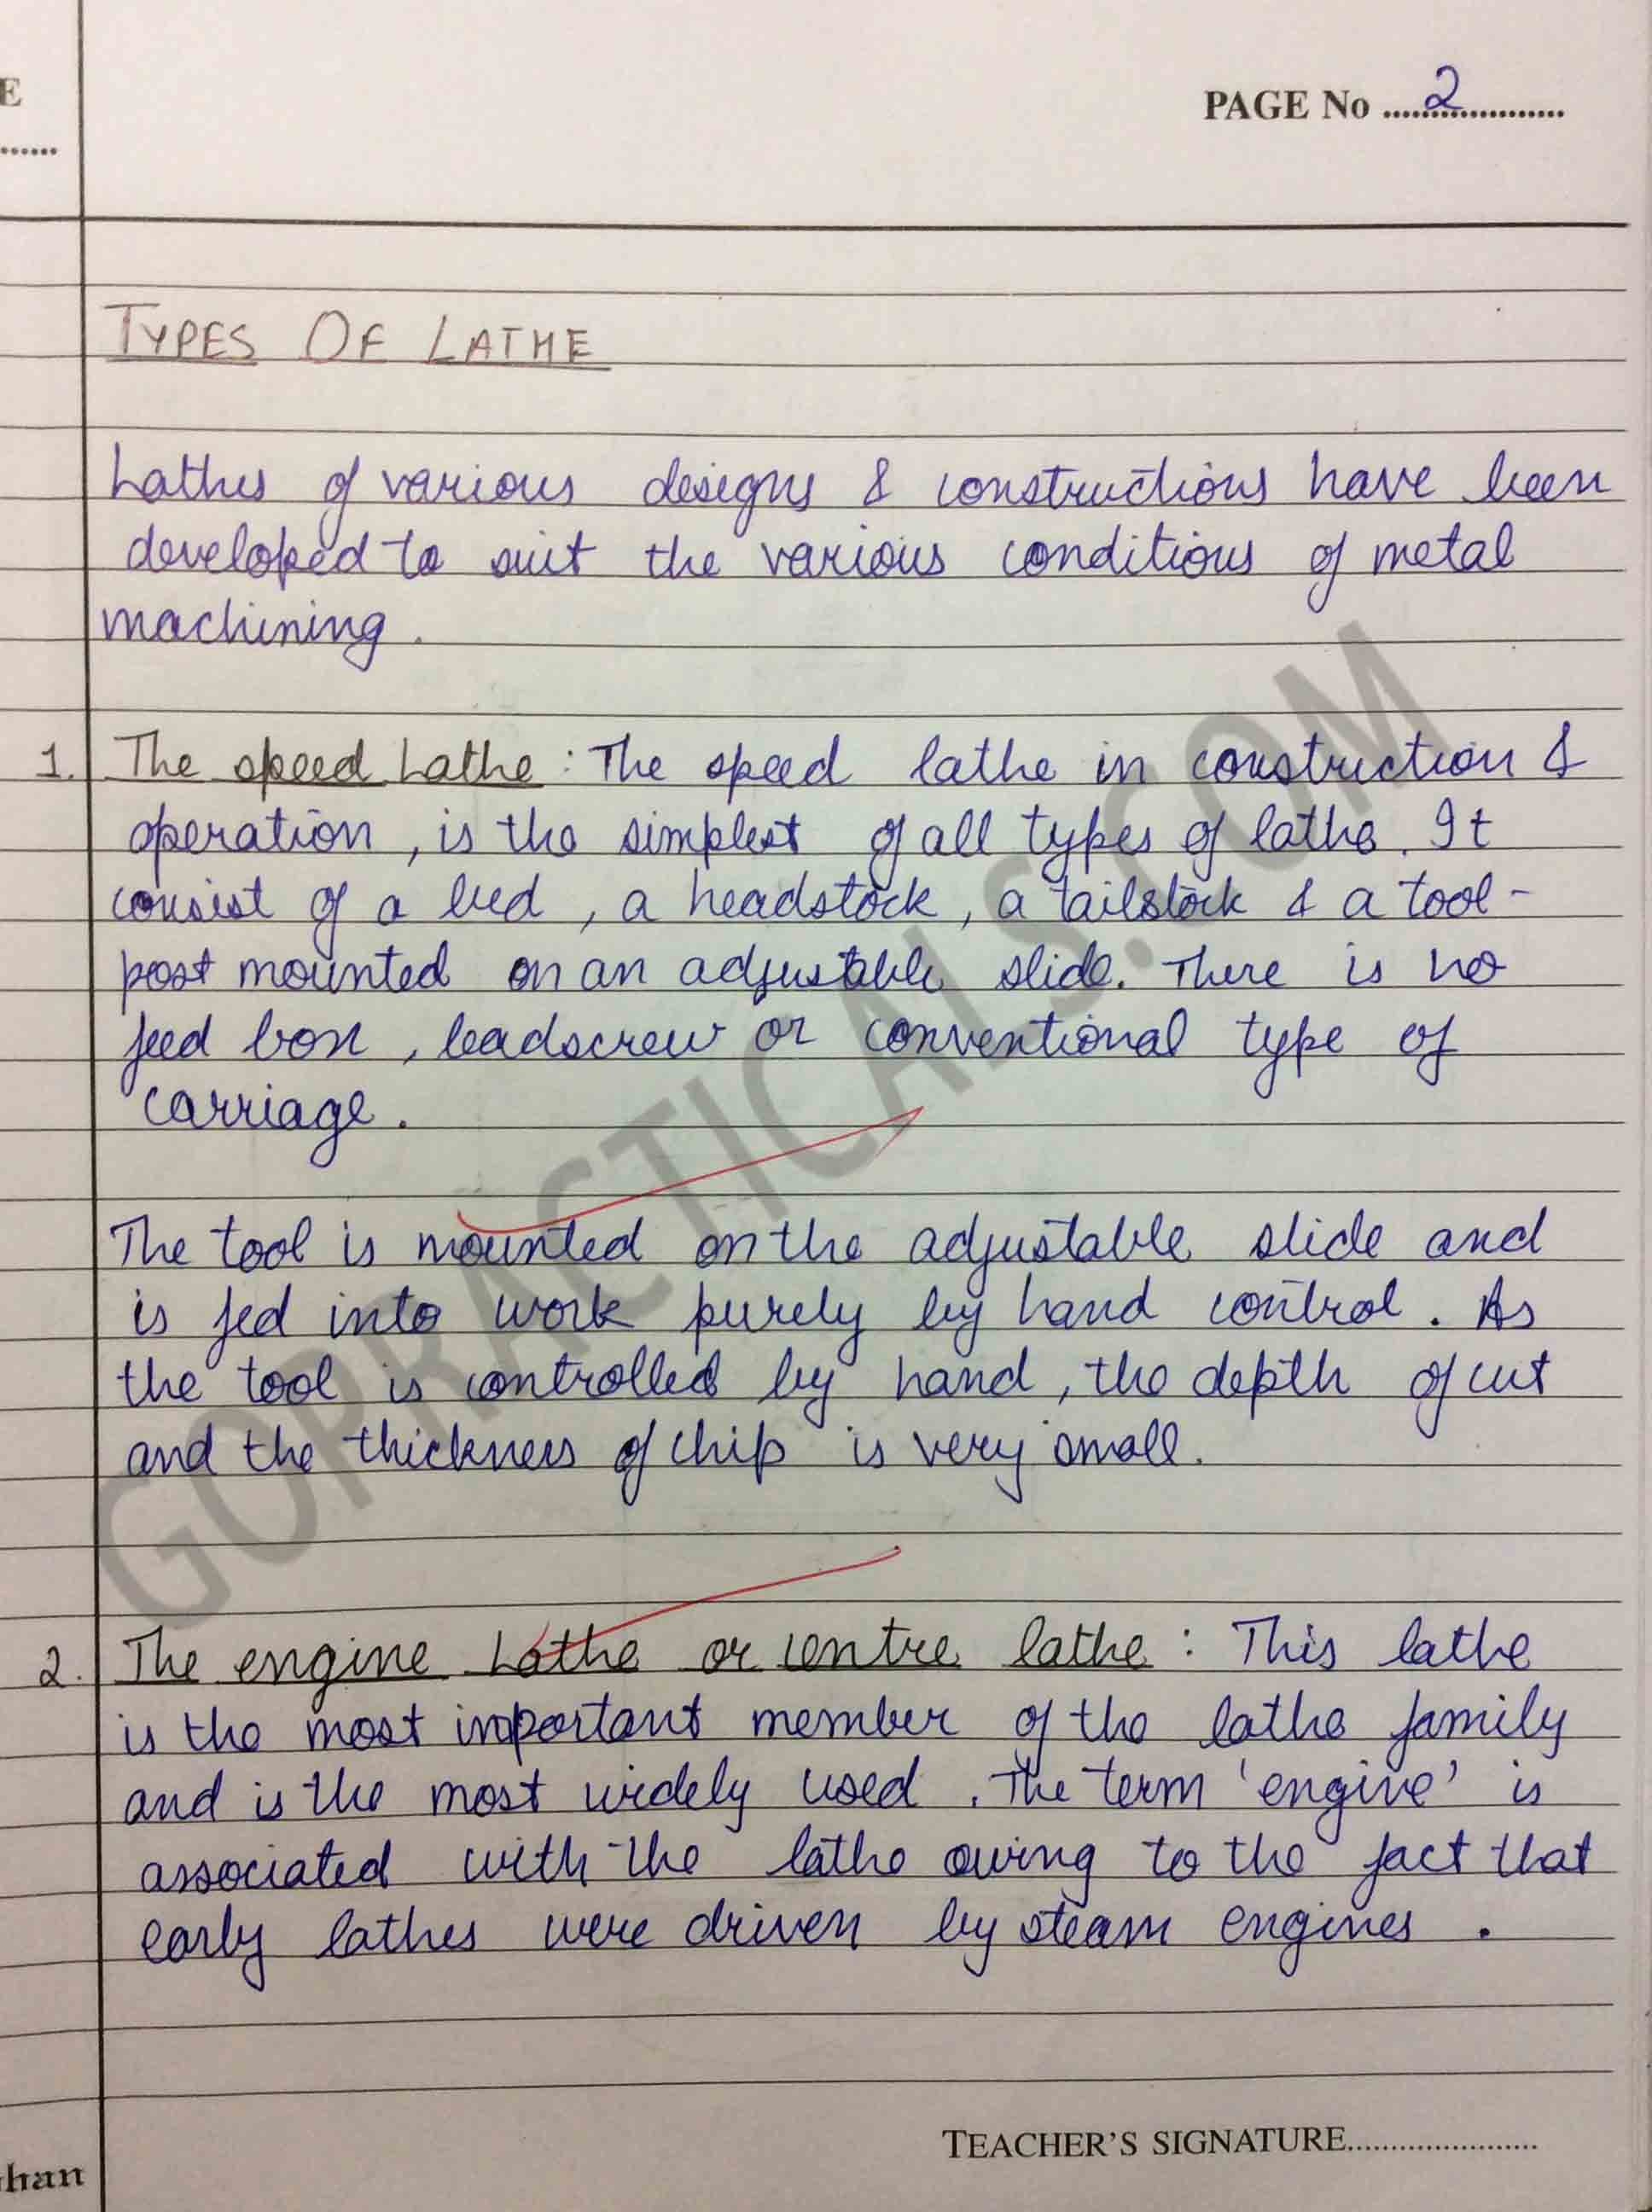 E
PAGE No ....2....
......
TYPES OF LATHE
Lathes of various designs & constructions have been
developed to suit the various conditions of metal
machining.
1. The speed Lathe : The speed lathe in construction &
operation, is the simplest of all types of lathe. It
consist of a bed, a headstock, a tailstock & a tool-
post mounted on an adjustable slide. There is no
feed box, leadscrew or conventional type of
carriage.
The tool is mounted on the adjustable slide and
is fed into work purely by hand control. As
the tool is controlled by hand, the depth of cut
and the thickness of chip is very small.
2. The engine Lathe or centre lathe : This lathe
is the most important member of the lathe family
and is the most widely used. The term 'engine' is
associated with the lathe owing to the fact that
early lathes were driven by steam engines.
TEACHER'S SIGNATURE......................
han
GOPRACTICALS.COM